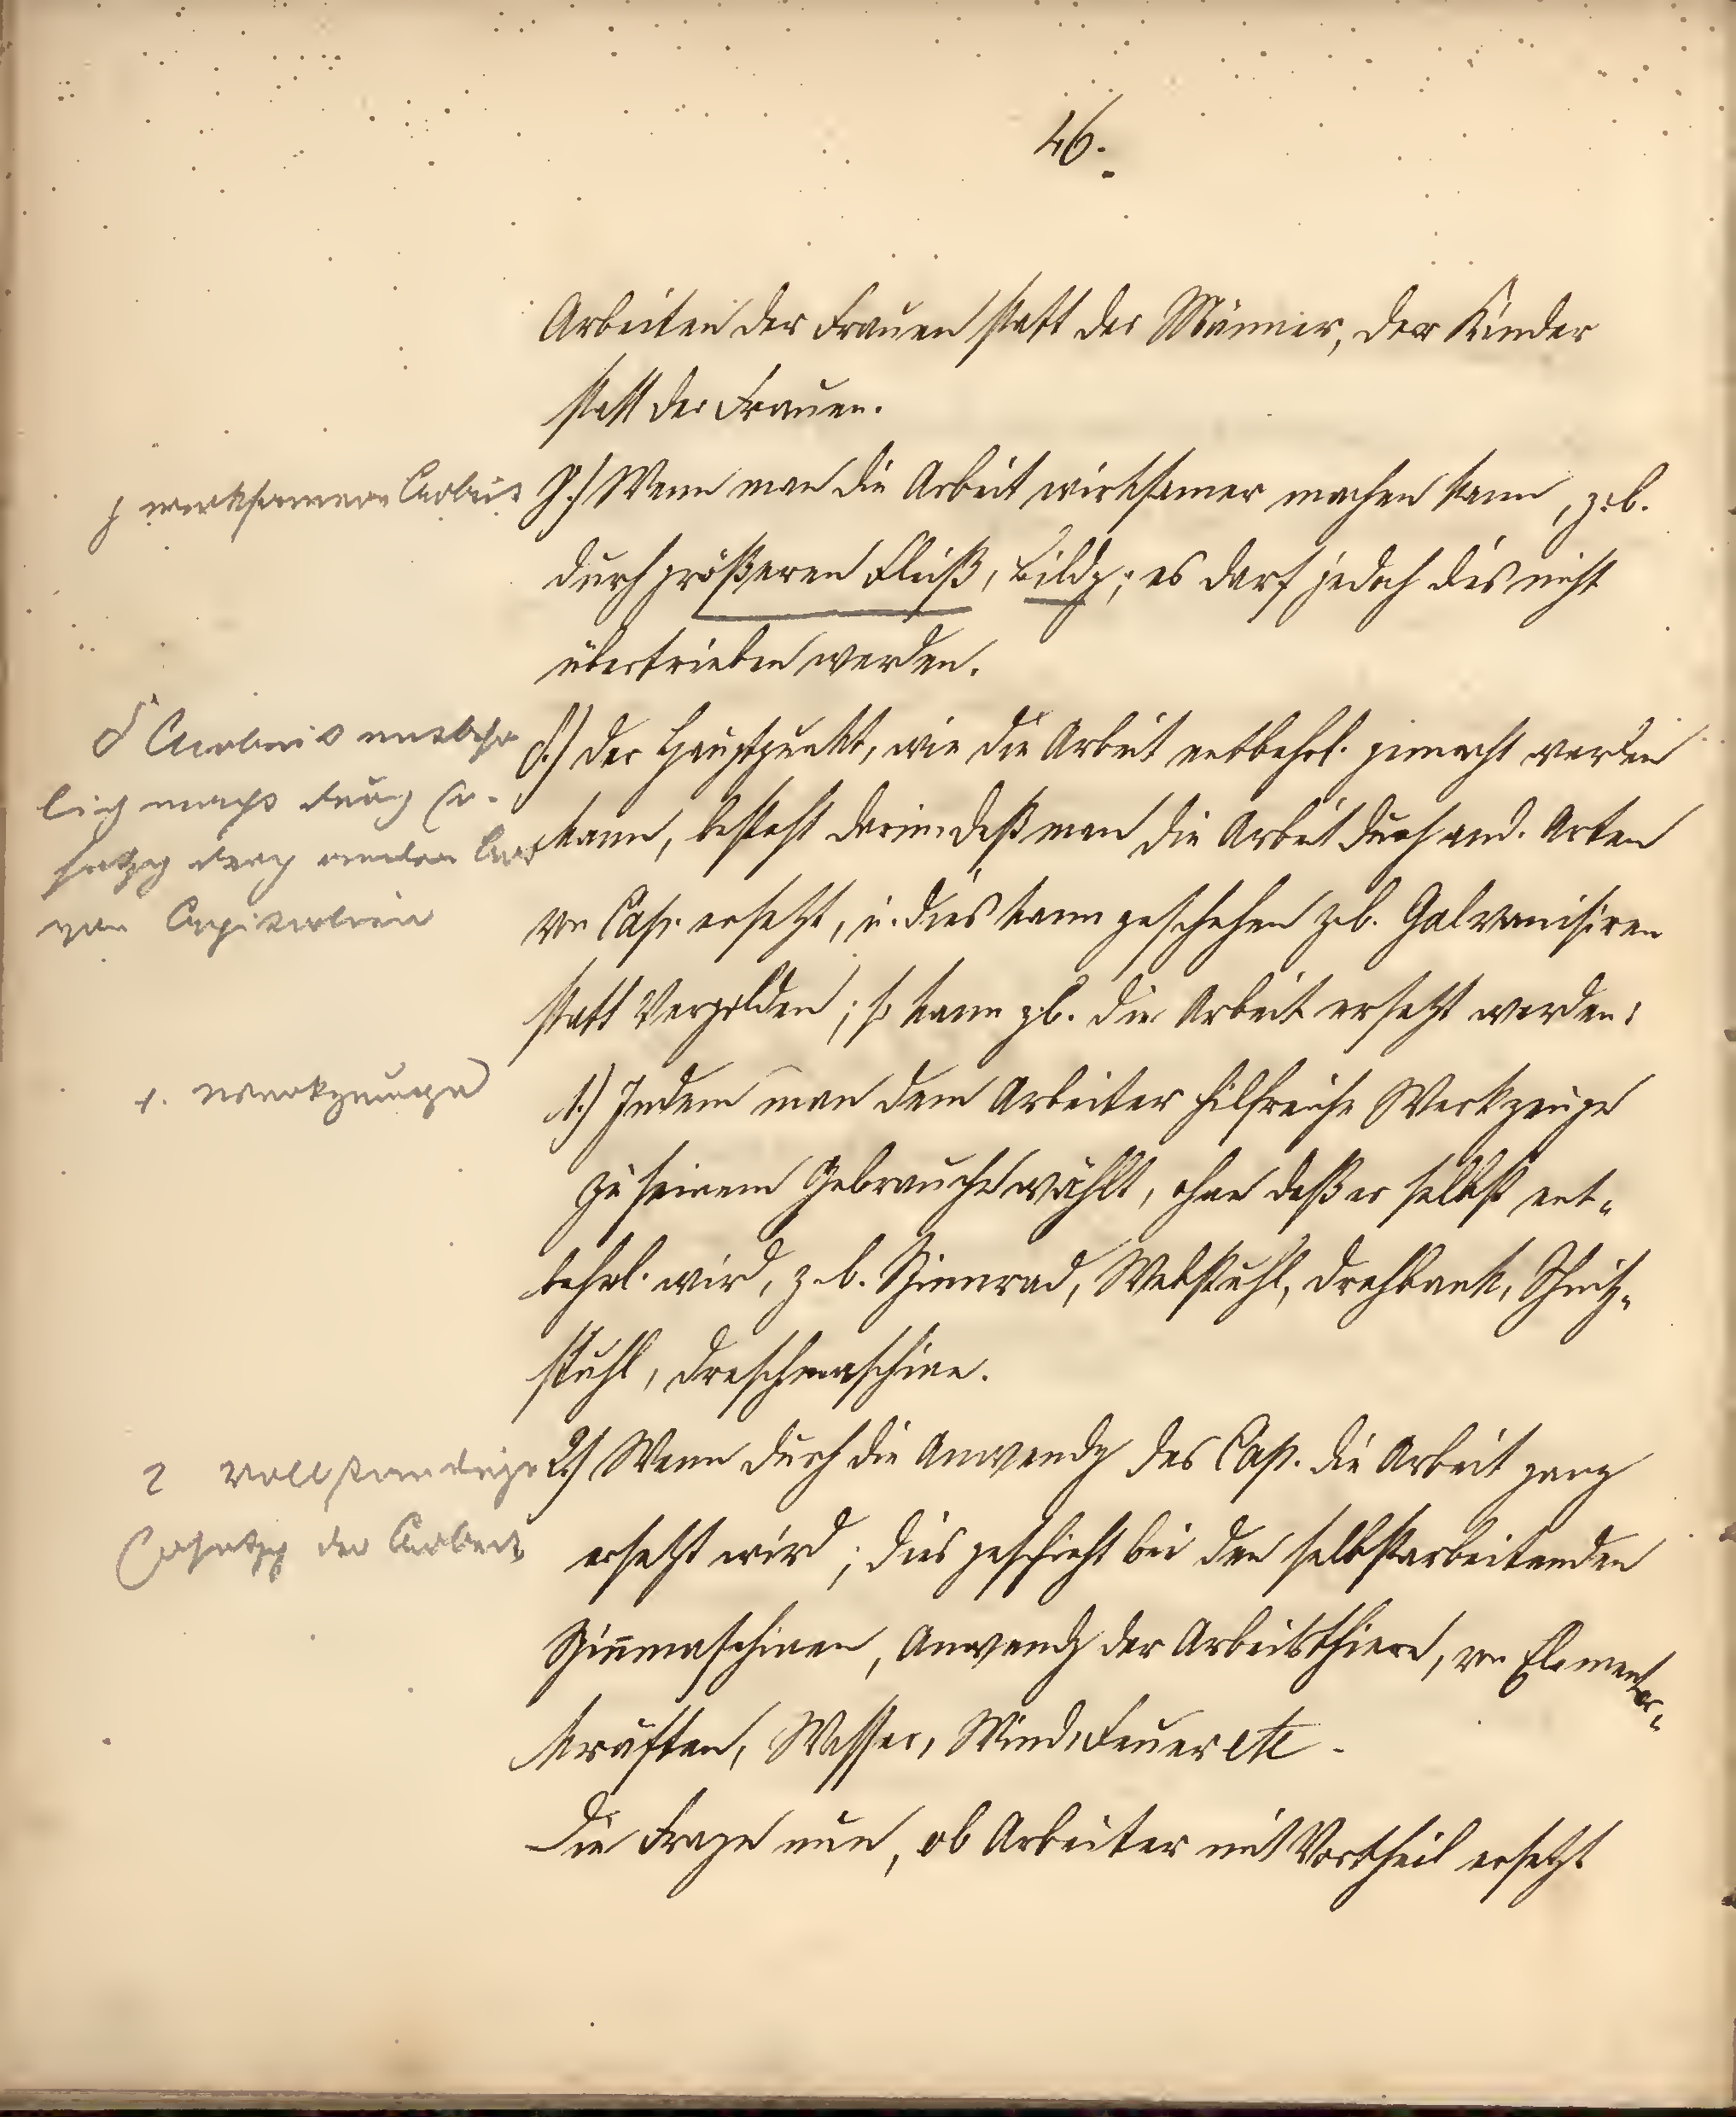 46.
Arbeiten der Frauen statt der Männer, der Kinder
statt der Frauen.
γ wirksamere Arbeit
γ.) Wenn man die Arbeit wirksamer machen kann, z.b.
durch größeren Fleiß, Bildg; es darf jedoch dies nicht
übertrieben werden.
δ Arbeit entbehr
lich macht durch Er-
setzg derch andere Art
von Capitalien
δ.) Der Hauptpunkt, wie die Arbeit entbehrl. gemacht werden
kann, besteht darin, daß man die Arbeit durch and. Arten
von Cap. ersetzt, u. dies kann geschehen z.b. Galvanisiren
statt Vergolden; so kann z.b. die Arbeit ersetzt werden:
1. Werkzeuge
1.) Indem man dem Arbeiter hilfreiche Werkzeuge
zu seinem Gebrauche wählt, ohne daß er selbst ent-
behrl. wird, z.b. Spinnrad, Webstuhl, Drehbank, Schnitz-
stuhl, Dreschmaschine.
2 vollständige
Ersetzg der Arbeit
2.) Wenn durch die Anwendg des Cap. die Arbeit ganz
ersetzt wird; dies geschieht bei den selbstarbeitenden
Spin̄maschinen, Anwendg der Arbeitsthiere, von Elementar-
kräften, Wasser, Wind, Feuer etc.
Die Frage nun, ob Arbeiter mit Vortheil ersetzt